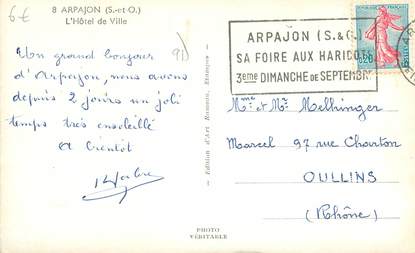 6€
8 ARPAJON (S.-et-O.)
L'Hôtel de Ville
91
Un grand bonjour
d'Arpajon, nous avons
depuis 2 jours un joli
temps très ensoleillé
A bientôt
Edition d'Art Rameau, Etampes
PHOTO
VÉRITABLE
ARPAJON (S.&O.)
SA FOIRE AUX HARICOTS
3eme DIMANCHE DE SEPTEMBRE
0,20
Mme et Mr Melhinger
Marcel 97 rue Charton
OULLINS
(Rhône)